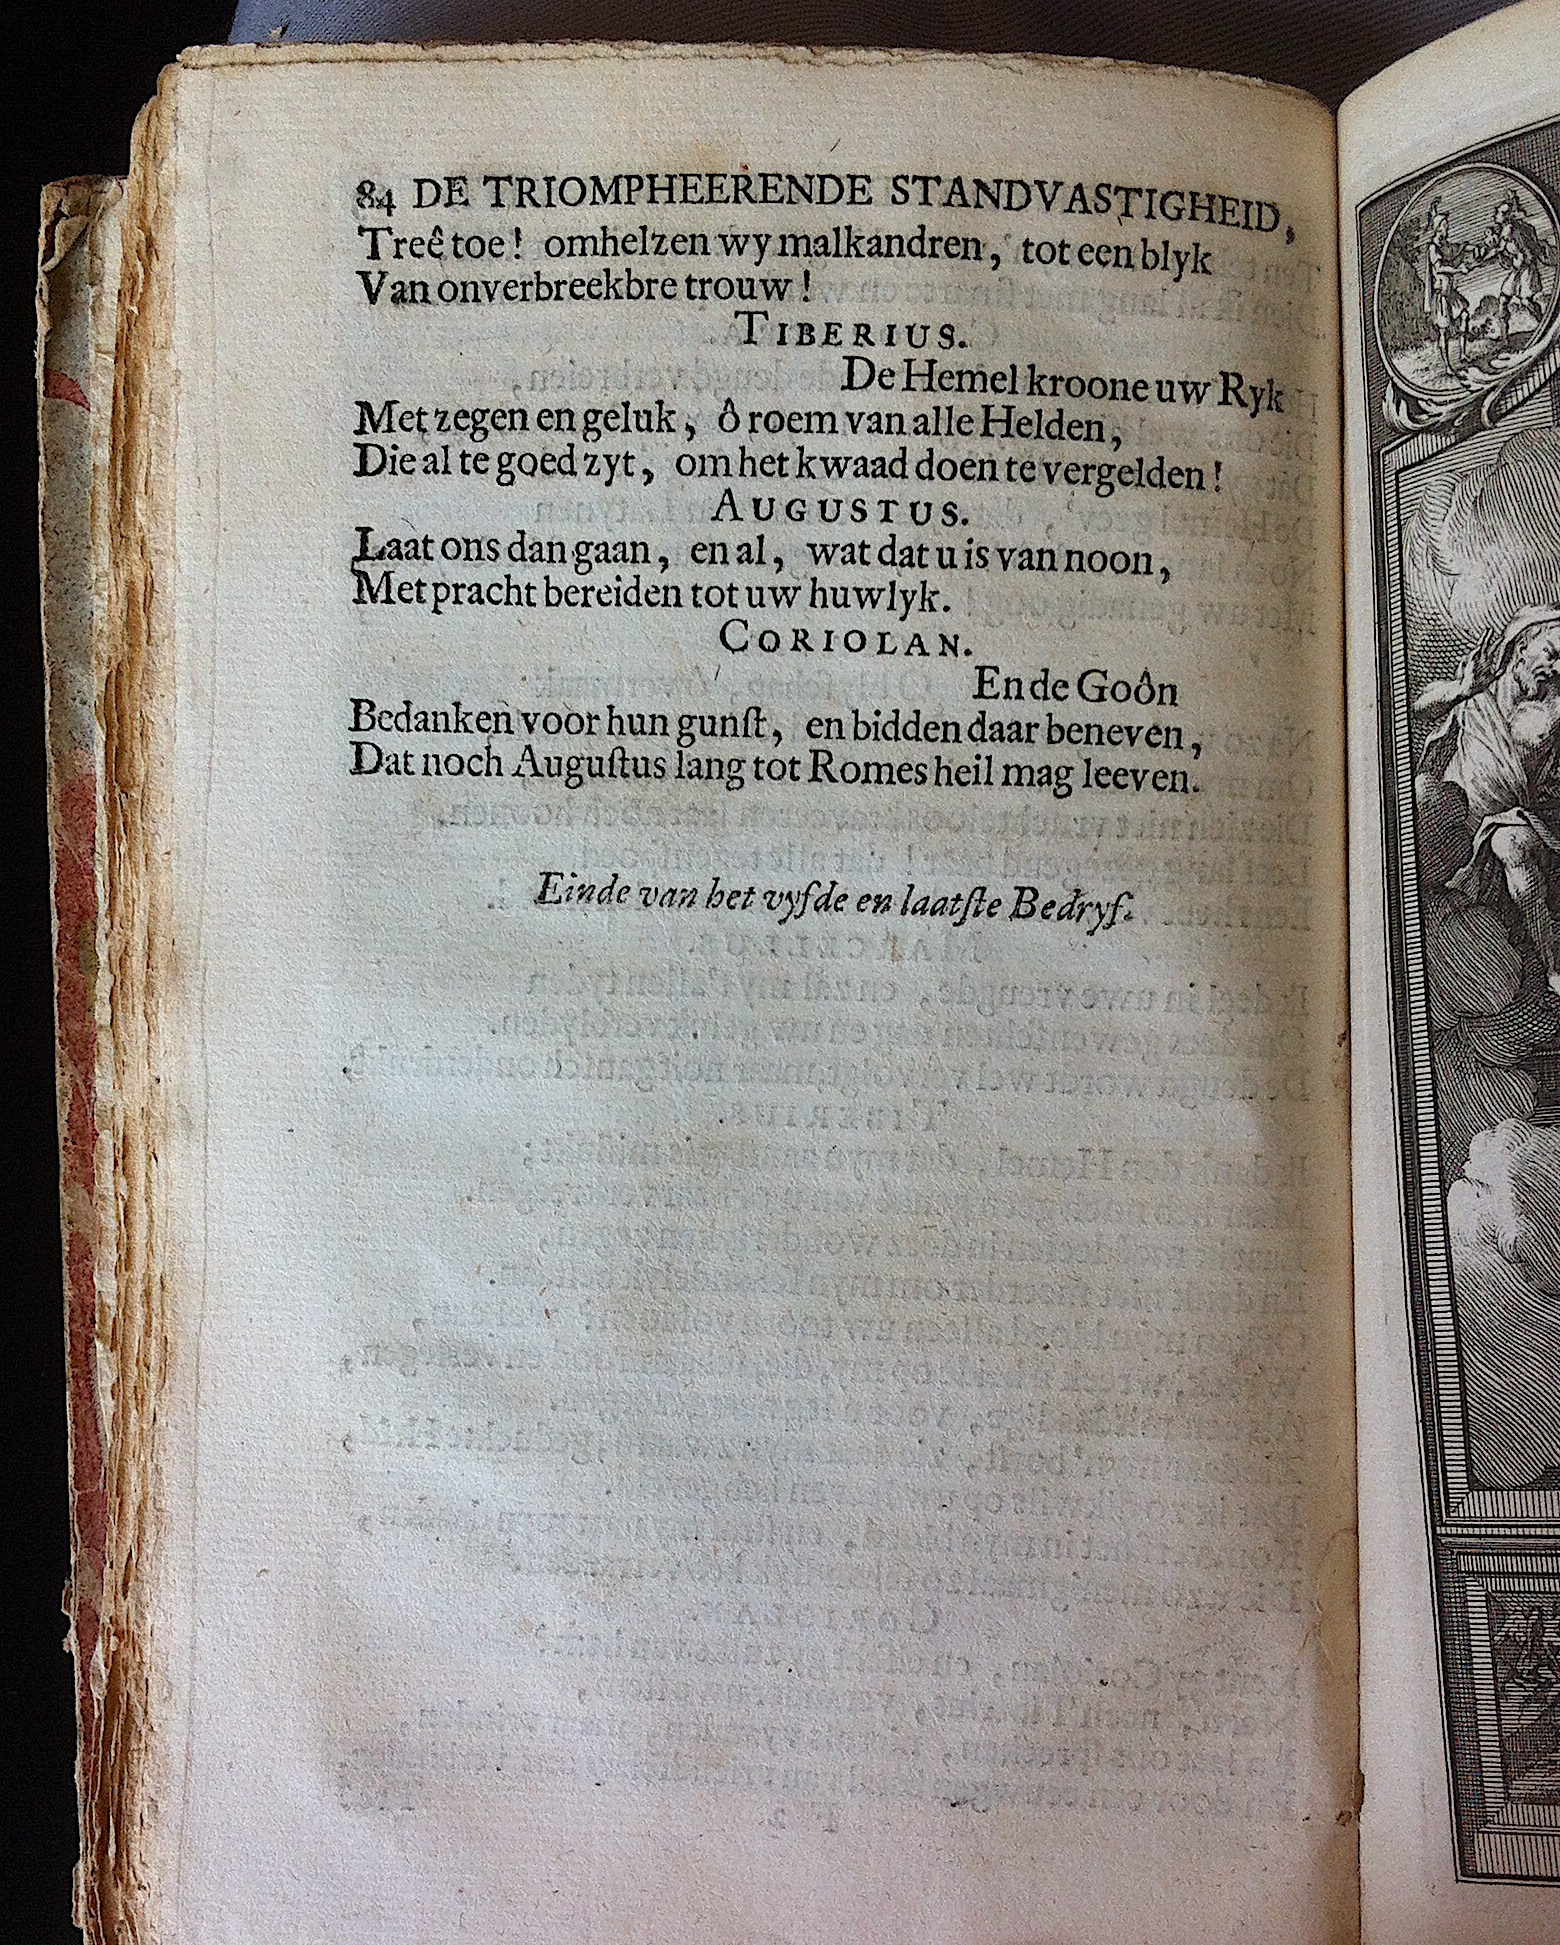 84 DE TRIOMPHEERENDE STANDVASTIGHEID,
Treê toe! omhelzen wy malkandren, tot een blyk
Van onverbreekbre trouw!
TIBERIUS.
De Hemel kroone uw Ryk
Met zegen en geluk, ô roem van alle Helden,
Die al te goed zyt, om het kwaad doen te vergelden!
AUGUSTUS.
Laat ons dan gaan, en al, wat dat u is van noon,
Met pracht bereiden tot uw huwlyk.
CORIOLAN.
En de Goôn
Bedanken voor hun gunſt, en bidden daar beneven,
Dat noch Auguſtus lang tot Romes heil mag leeven.
Einde van het vyfde en laatſte Bedryf.